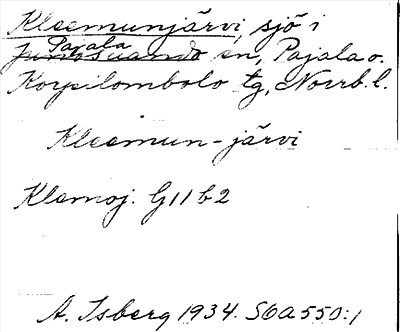 Kleemunjärvi, sjö i
Pajala
Junosuando sn, Pajala o.
Korpilombolo tg, Norrb. l.
Kleemun-järvi
Klemoj. G11b2
A. Isberg 1934. S6a550:1